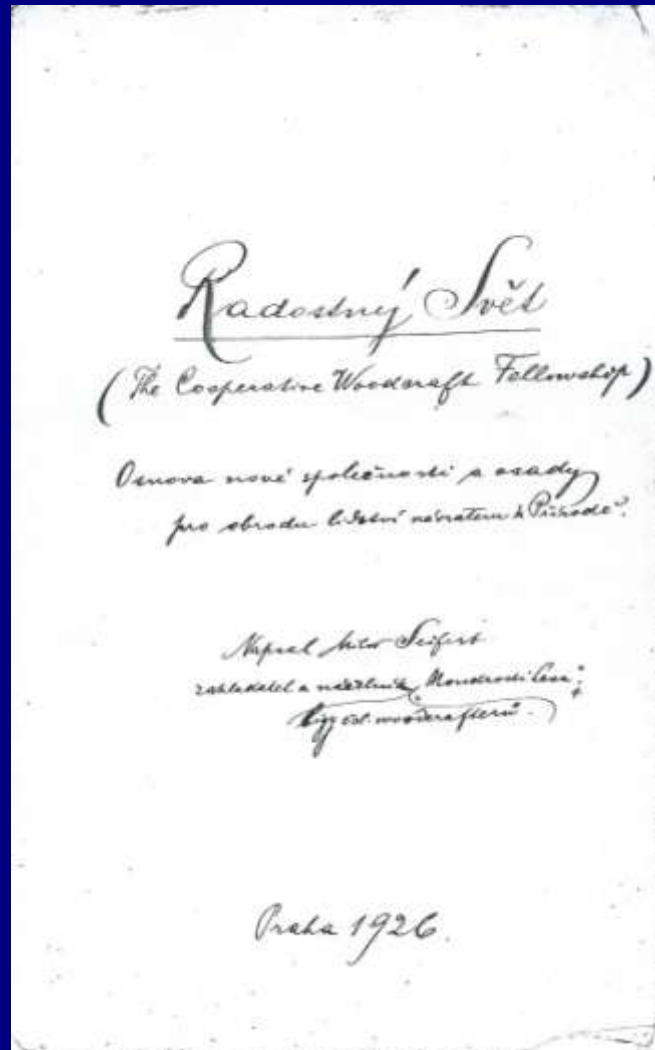 Radostný Svět
(The Cooperative Woodcraft Fellowship)
Osnova nové společnosti a osady
pro obrodu lidství návratem k Přírodě.
Napsal Miloš Seifert
zakladatel a náčelník „Moudrosti Lesa“:
Ligy čsl. woodcrafterů.
Praha 1926.